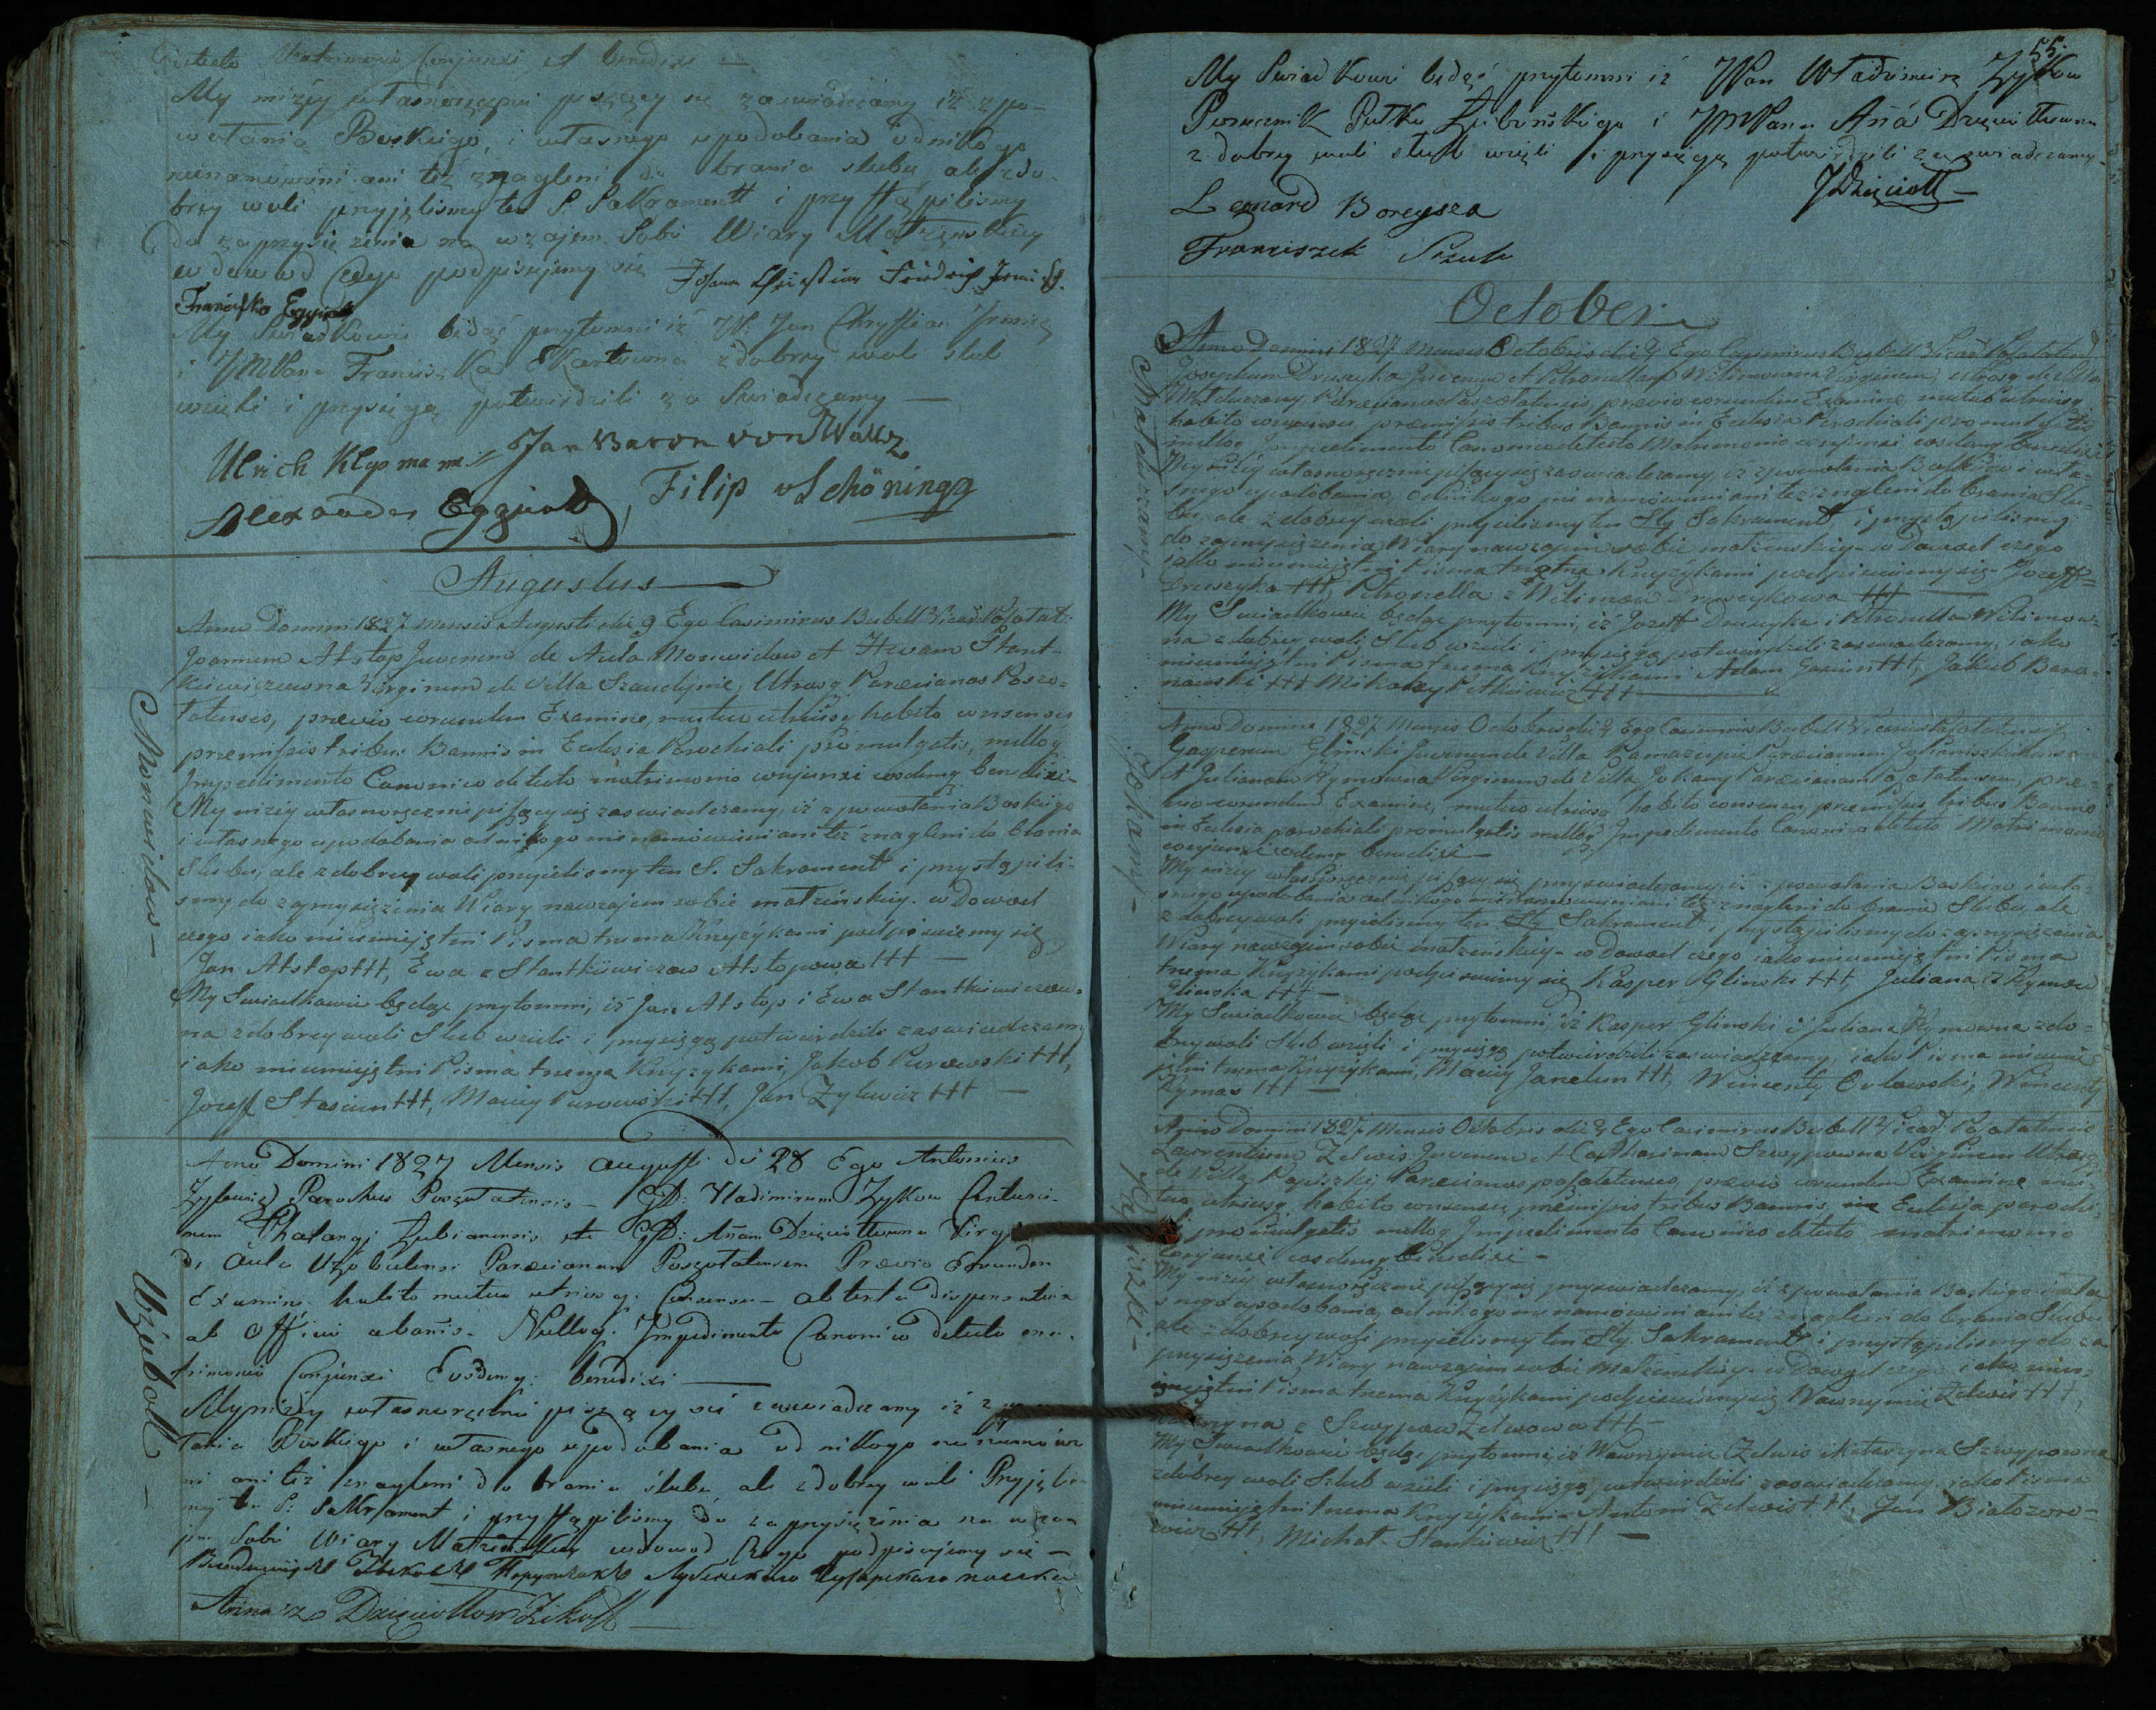 detecto Matrimonio Conjunxi et benedixi —
My niżey własnoręcznie piszący się zaswiadczamy iż z po-
wołania Boskiego, i własnego upodobania od nikogo
nienamówieni ani też znagleni do brania slubu, ale z do-
brey woli przyjęlismy ten S. Sakrament i przystąpilismy
do zaprzysiężenia na wzajem Sobie Wiary Małżenskiey
w dowod czego podpisujemy się Johann Christian Friedrich
Franciszka
My Swiadkowie będąc przytomni iż W: Jan Chrystian
i JMPana Franciszka Ekartowna z dobrey woli slub
wzięli i przysięgą potwirdzili za Swiadczamy —
Ulrich Klopmann Jan Baron von
Alexander Filip v Schöningg
Augustus
Anno Domini 1827 mensis Augusti die 9 Ego Casimirus Bubell Vicar: Poszatat:
Joannem Atstop Juvenem de Aula Monwidow et Hevam Stant-
kiewiczowna Virginem de Villa Szaudynie, Utrosq Paroecianos Posza-
tatenses, praevio eorundem Examine, mutuo utriusq habito consensu
praemissis tribus Bannis in Eclesia Parochiali promulgatis, nulloq
Impedimento Canonico detecto matrimonio conjunxi eosdemq benedixi-
My niżey własnoręcznie piszący się zaswiadczamy, iż z powołania Boskiego
i własnego upodobania od nikogo nie namówieni ani też znagleni do brania
Slubu, ale z dobrey woli przyielismy ten S. Sakrament i przystąpili-
smy do zaprzysiężenia Wiary nawzajem sobie małżeńskiy. w Dowod
czego iako nieumiejętni Pisma trzema Krzyżykami podpisuiemy się
Jan Atstop +++, Ewa z Stantkiewiczow Atstopowa +++ —
My Swiadkowie będąc przytomni, iż Jan Atstop i Ewa Stantkiewiczow-
na z dobrey woli Slub wzieli i przysięgą potwierdzili zaswiadczamy
iako nieumiejętni Pisma trzema Krzyżykami, Jakob Purowski +++,
Jozeff Stasiun +++, Maciey Purowski +++, Jan Zylewicz +++ —
Monwidow —
Anno Domini 1827 Mensis Augusti die 28 Ego Antonius
Zyglewicz Parochus Poszatatensis — Vladimirum Zykow Centurio-
nem Phalangi Lubianensis et Annam Dzięciołłowna Virginem
de Aula Użubulensi Paroecianam Poszatatensem Praevio Eorundem
Examine habito mutuo utriusq: Consensu — Obtenta dispensatione
ab Officio a bannis. Nulloq: Impedimento Canonico detecto ma-
trimonio Conjunxi Eosdemq: benedixi —
My niżey własnoręcznie piszący się zaswiadczamy iż z powo-
łania Boskiego i własnego upodobania od nikogo nienamówie
ni ani też znagleni do brania slubu, ale z dobrey woli Przyjęlis
my ten S: Sakrament i przystąpilismy do zaprzysiężenia na wza
jem Sobie Wiary Małżenskiey w dowod Czego podpisujemy się —
Владимиръ Зыковъ Порутчикъ Лубенскаго Гусарскаго полка
Anna z Dzięciołłow Zikoff
Użubole —
55.
My Swiadkowie będąc przytomni iż WPan Władimirz Zykow
Porucznik Pułku Lubińskiego i JMPana Anna Dzięciołłowna
z dobrey woli slub wzięli i przysięgą potwirdzili za swiadczamy
JDzięcioll —
Leonard Boreysza
Franciszek
October
Anno Domini 1827 Mensis Octobris die 2 Ego Casimirus Bubell Vicar: Poszatatensis
Josephum Druseyka Juvenem et Petronellam Witimowna Virginem, utrosq de Villa
Matuszany, Paroecianos Poszatatenses, praevio eorundem Examine mutuo utriusq
habito consensu, praemissis tribus Bannis in Eclesia Parochiali promulgatis
nulloq Impedimento Canonico detecto Matrimonio conjunxi eosdemq benedixi
My niżey własnoręcznie piszący się zaswiadczamy, iż z powołania Boskiego i wła-
snego upodobania, od nikogo nie namówieni ani też znagleni do brania Slu-
bu, ale z dobrey woli przyielismy ten Sty Sakrament, i przystąpilismy
do zaprzysiężenia Wiary nawzajem sobie małżenskiy- w Dowod czego
iako nieumiejętni Pisma trzema Krzyżykami podpisuiemy się Jozeff
Druseyka +++, Petronella z Witimow Druseykowa +++ —
My Swiadkowie będąc przytomni, iż Jozeff Druseyka i Petronella Witimow-
na z dobrey woli Slub wzieli i przysięgą potwierdzili zaswiadczamy, iako
nieumiejętni Pisma trzema Krzyżykami Adam +++, Jakub Bara-
nowski +++ Mikołay Petkiewicz +++ —
Matuszany -
Anno Domini 1827 Mensis Octobris die 2 Ego Casimirus Bubell Vicarius Poszatatensis
Gasperum Glinski Juvenem de Villa Paroecianum
et Julianam Rymowna Virginem de Villa Jokany Paroecianam Poszatatensem, prae-
vio eorundem Examine, mutuo utriusq habito consensu, praemissis tribus Bannis
in Eclesia parochiali promulgatis nulloq Impedimento Canonico detecto Matrimonio
conjunxi eosdemq benedixi —
My niżey własnoręcznie piszący się przyswiadczamy, iż z powołania Boskiego i wła-
snego upodobania od nikogo nienamowieni ani też znagleni do brania Slubu ale
z dobrey woli przyielismy ten Sty Sakrament i przystąpilismy do zaprzysiężenia
Wiary nawzajem sobie małżeńskiey- w Dowod czego iako nieumiejętni Pisma
trzema Krzyżykami podpisuiemy się Kasper Glinski +++, Juliana z Rymow
Glinska +++ —
My Swiadkowie będąc przytomni, iż Kasper Glinski i Juliana Rymowna z do-
brey woli Slub wzieli i przysięgą potwierdzili zaswiadczamy, iako Pisma nieumie
jętni trzema Krzyżykami, Maciey Janelun +++, Wincenty Orlowski, Wincenty
Rymas +++ —
Jokany -
Anno Domini 1827 Mensis Octobris die 2 Ego Casimirus Bubell Vicar: Poszatatensis
Laurentium Zelwis Juvenem et Catharinam Szwypowna Virginem Utrosq
de Villa Paroecianos poszatatenses, praevio eorundem Examine mu-
tuo utriusq habito consensu praemissis tribus Bannis in Eclesia parochi-
ali promulgatis nulloq Impedimento Canonico detecto matrimonio
conjunxi eosdemq benedixi —
My niżey własnoręcznie piszący się przyswiadczamy, iż z powołania Boskiego i wła
snego upodobania, od nikogo nienamówieni ani też znagleni do brania Slubu
ale z dobrey woli przyielismy ten Sty. Sakrament i przystąpilismy do za
przysiężenia Wiary nawzajem sobie Małżeńskiey- w Dowod czego iako nieu-
miejętni Pisma trzema Krzyżykami podpisuiemy się Wawrzyniec Zelwis +++,
Katarzyna z Szwypow Zelwowa +++ —
My Swiadkowie będąc przytomni, iż Wawrzyniec Zelwis i Katarzyna Szwypowna
z dobrey woli Szlub wzieli i przysięgą potwierdzili zaswiadczamy, iako Pisma
nieumiejętni trzema Krzyżykami- Antoni Zelwis +++, Jan Białozore-
wicz +++, Michał Stankiewicz +++ —